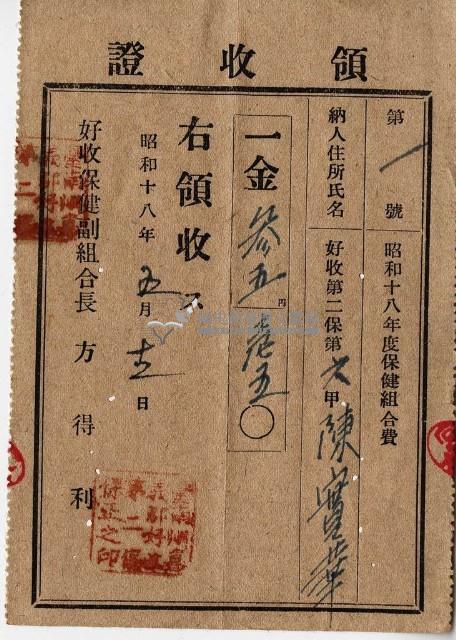 領收證
第一號 昭和十八年度保健組合費
納人住所氏名 好收第二保第六甲 陳寶華
一金 参五円壱五〇
右領收ス
昭和十八年五月 日
好收保健副組合長 方得利